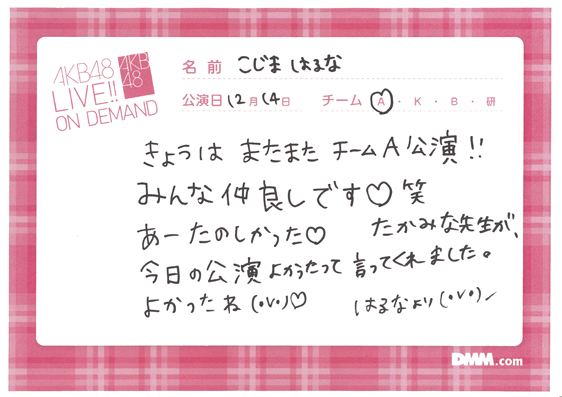 AKB48
LIVE!!
ON DEMAND
AKB
48
名前 こじまはるな
公演日 12月14日 チーム A・K・B・研
きょうは またまた チームA公演!!
みんな仲良しです♡ 笑
あーたのしかった♡ たかみな先生が、
今日の公演よかったって 言ってくれました。
よかったね (・v・)♡ はるなより (・v・)ノ
DMM.com